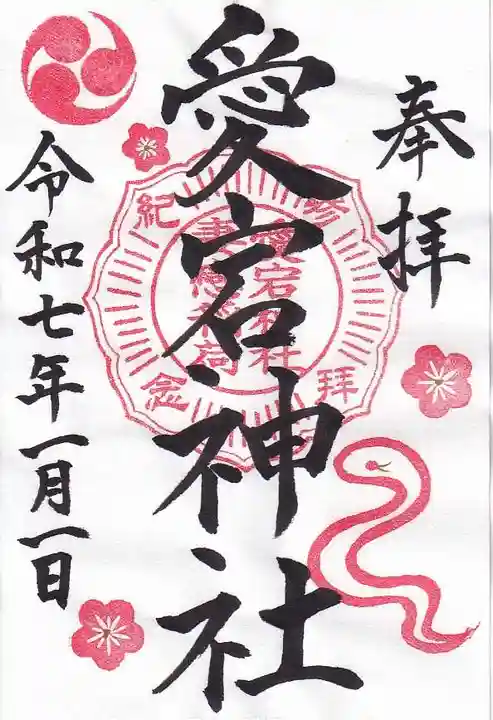 奉拝
愛宕神社
令和七年一月一日
参拝紀念
愛宕神社